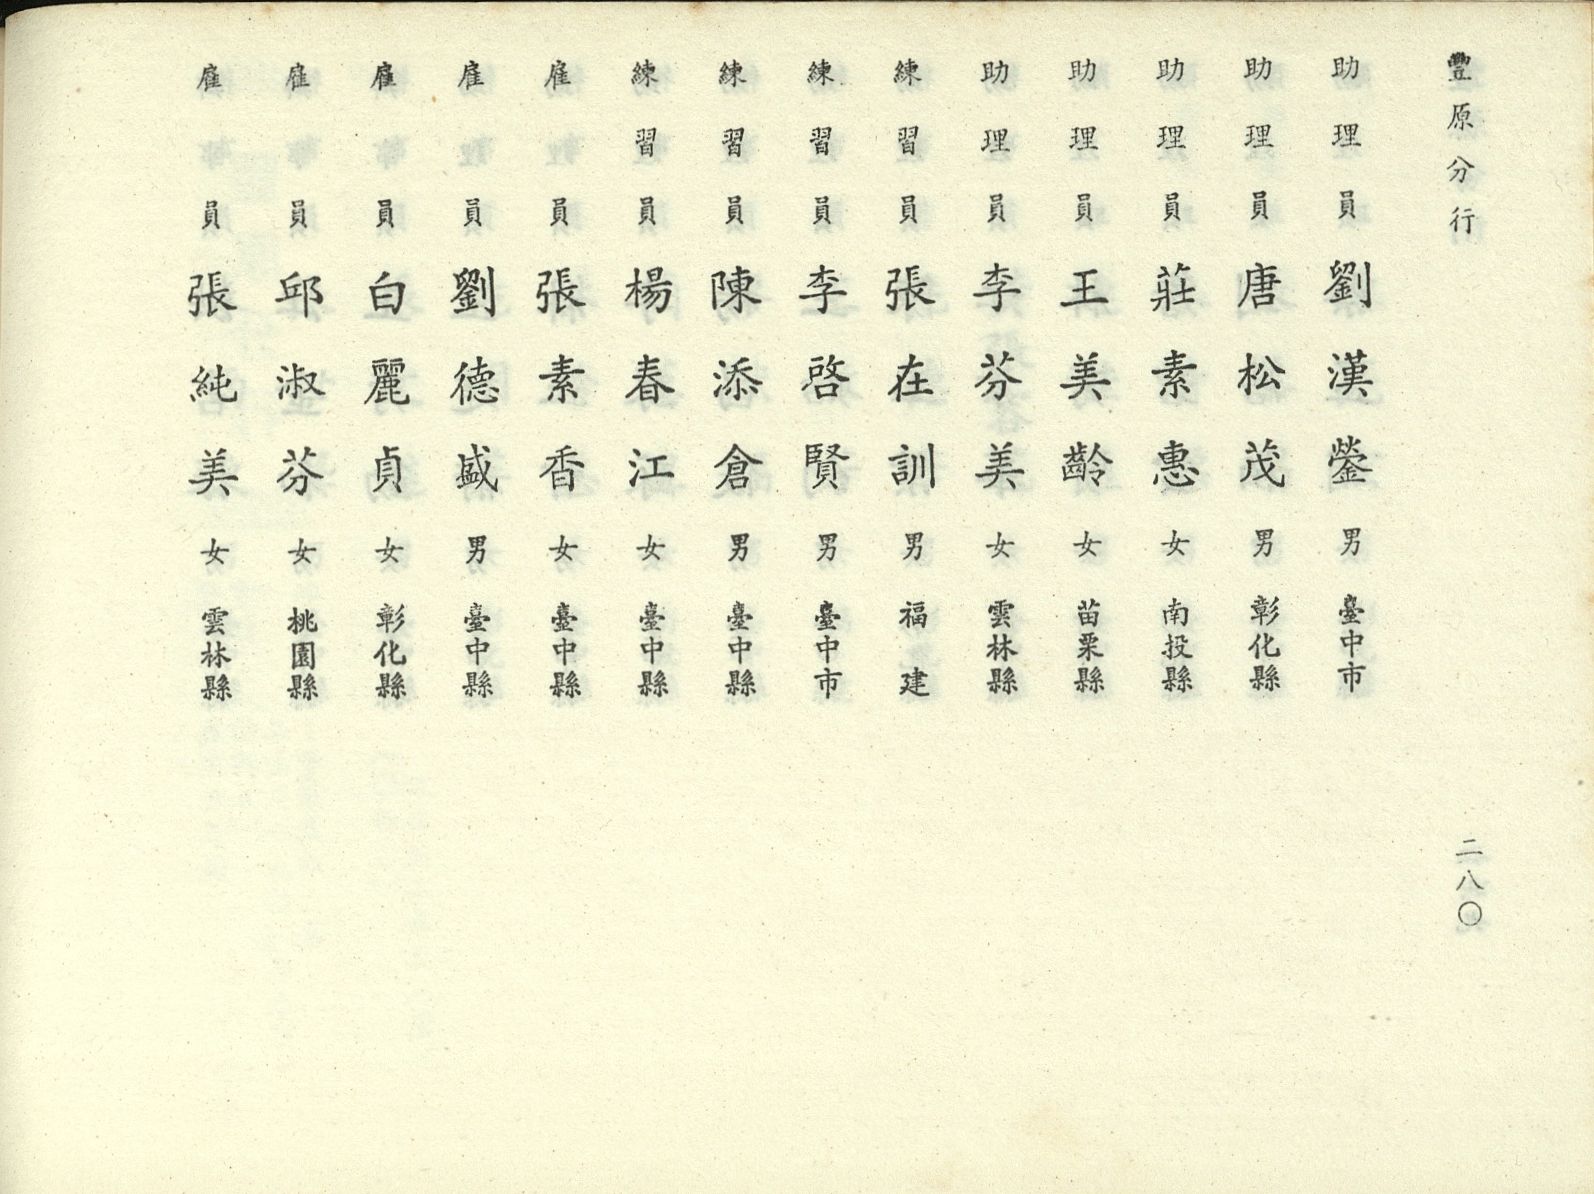 豐原分行
助理員 劉漢鎣 男 臺中市
助理員 唐松茂 男 彰化縣
助理員 莊素惠 女 南投縣
助理員 王美齡 女 苗栗縣
助理員 李芬美 女 雲林縣
練習員 張在訓 男 福建
練習員 李啓賢 男 臺中市
練習員 陳添倉 男 臺中縣
練習員 楊春江 女 臺中縣
雇員 張素香 女 臺中縣
雇員 劉德盛 男 臺中縣
雇員 白麗貞 女 彰化縣
雇員 邱淑芬 女 桃園縣
雇員 張純美 女 雲林縣
二八〇